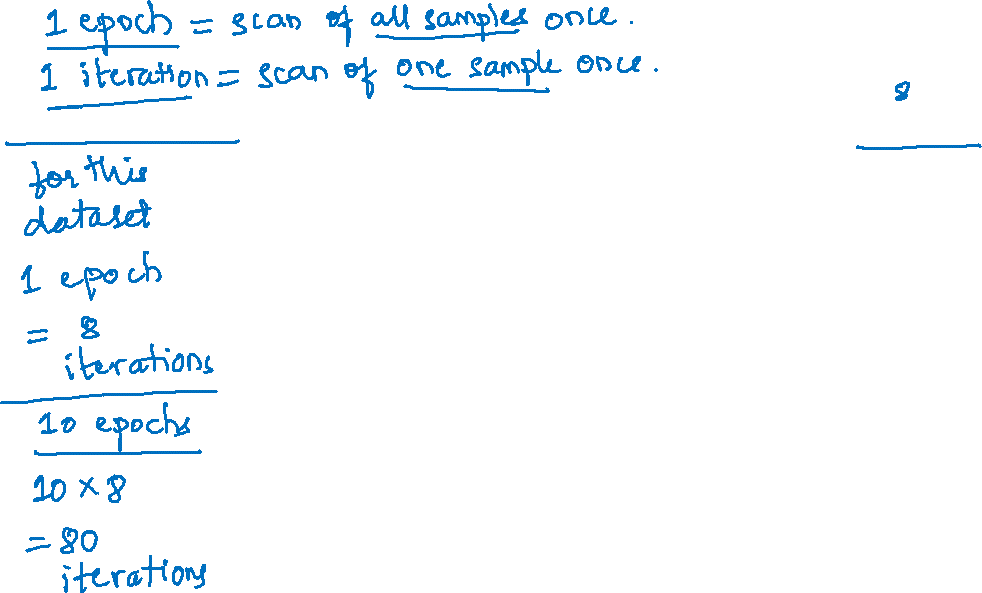 1 epoch = scan of all samples once.
1 iteration = scan of one sample once.
8
for this
dataset
1 epoch
= 8
iterations
10 epochs
10 × 8
= 80
iterations